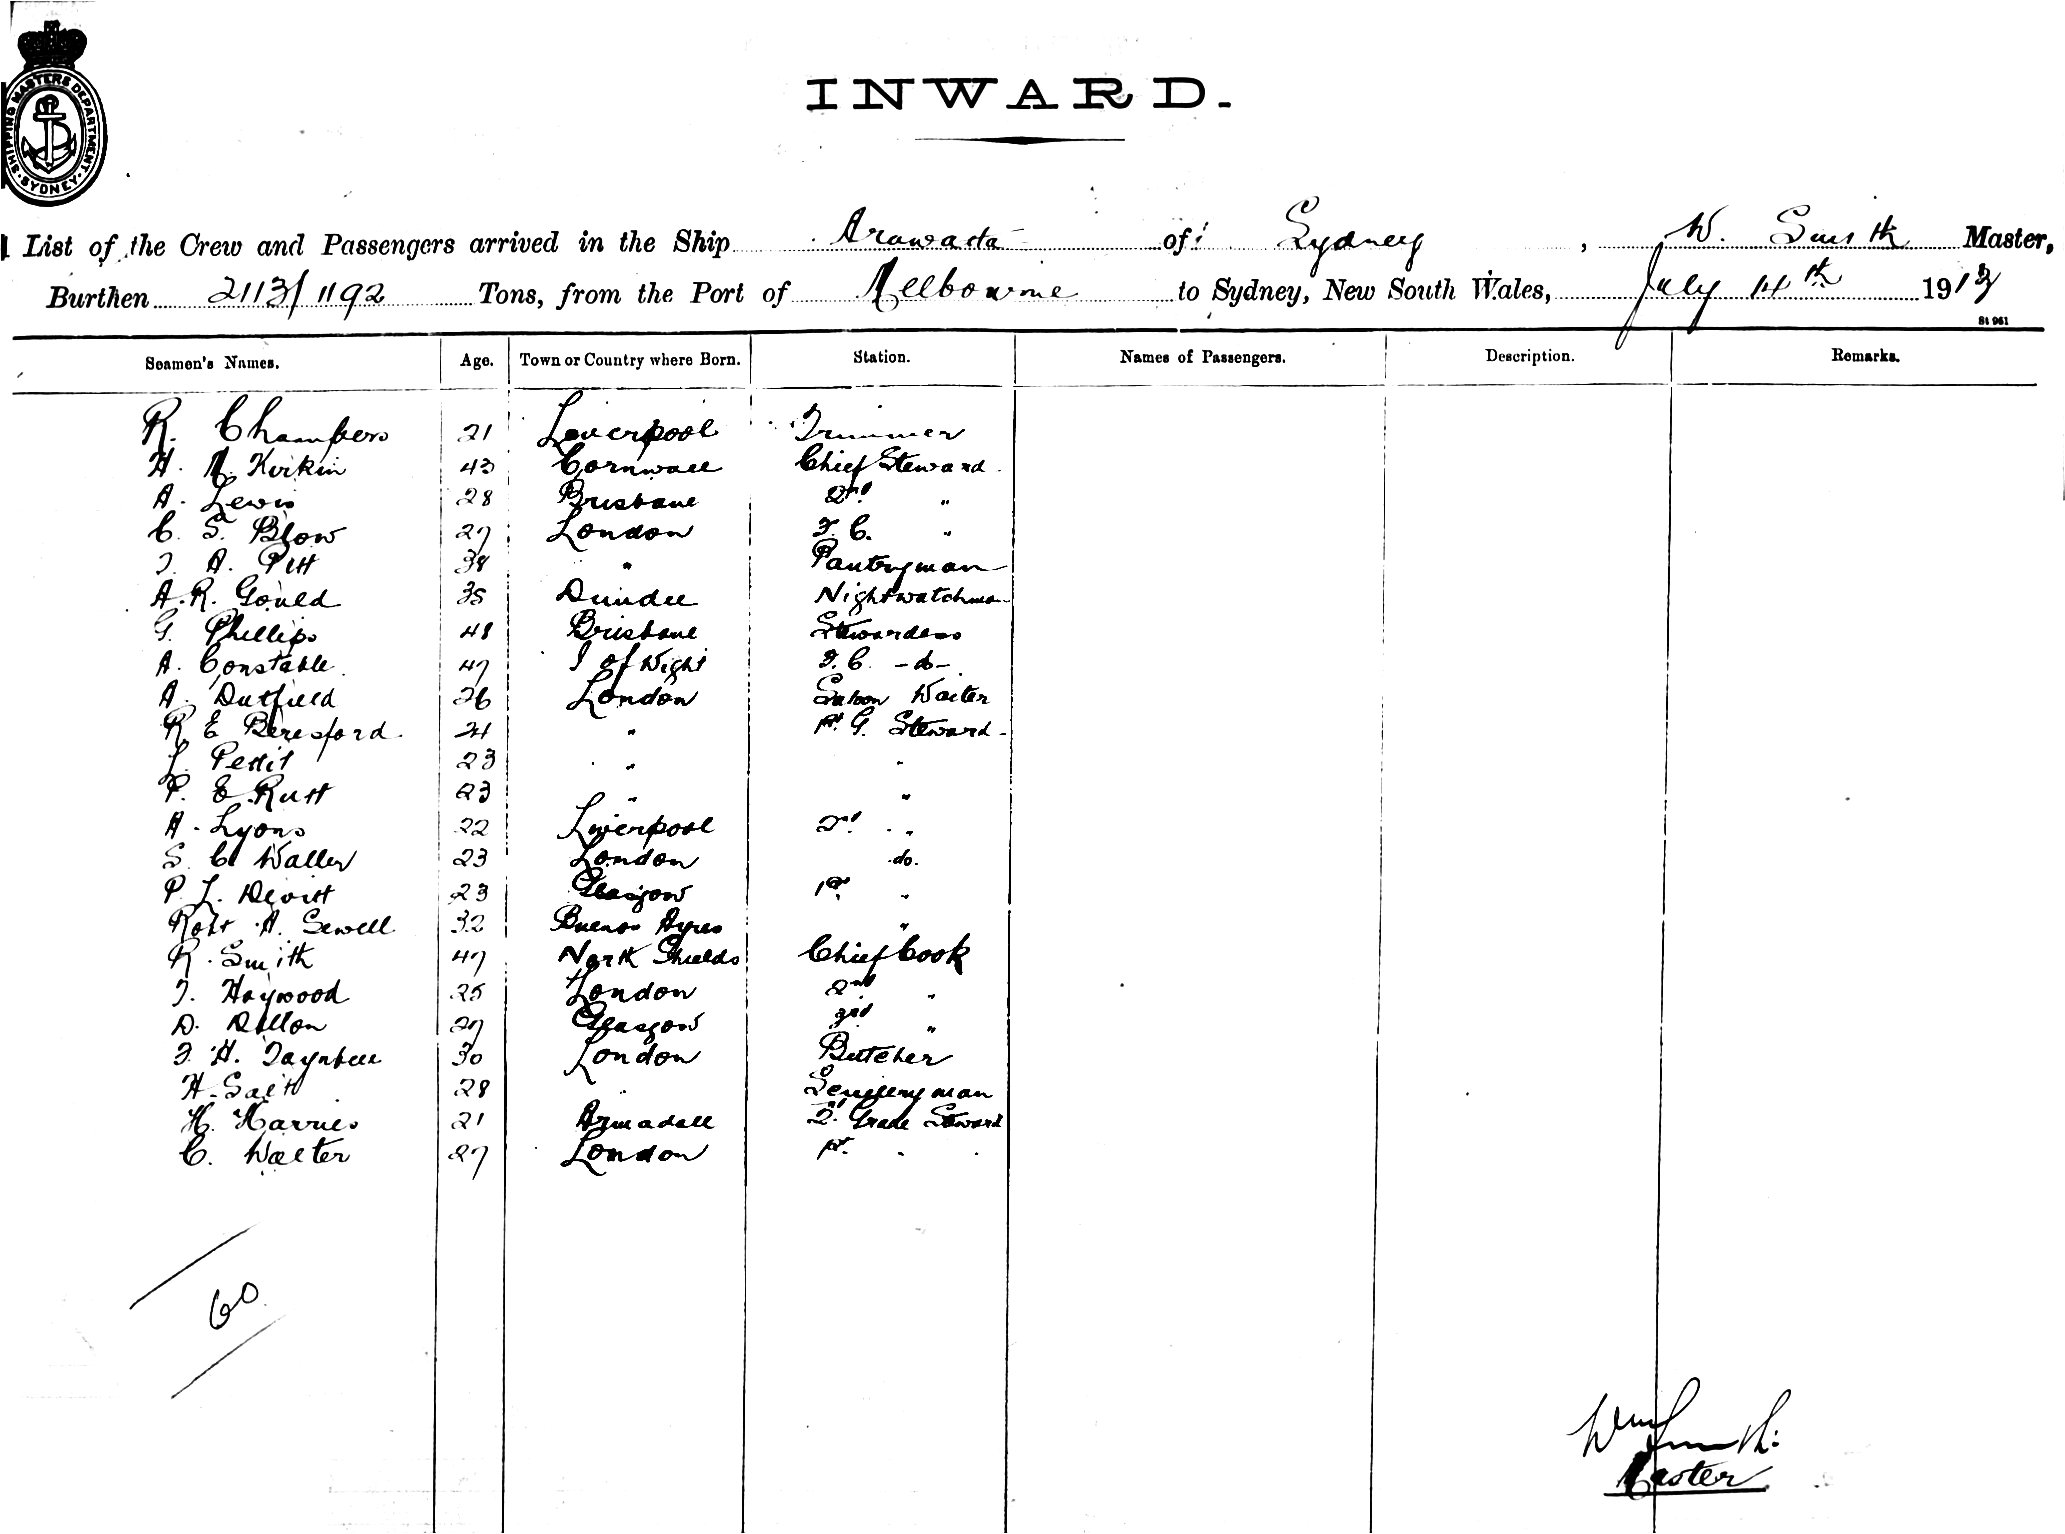 SHIPPING MASTERS DEPARTMENT. SYDNEY.
INWARD.
List of the Crew and Passengers arrived in the Ship Arawatta of Sydney, W. Smith Master,
Burthen 2113/1192 Tons, from the Port of Melbourne to Sydney, New South Wales, July 14th 1913
St 961
Seamen's Names. Age. Town or Country where Born. Station. Names of Passengers. Description. Remarks.
R. Chambers 21 Liverpool Trimmer
H. Kirkin 43 Cornwall Chief Steward
A. Lewis 28 Brisbane 2nd "
C. S. Blow 27 London F. C. "
J. A. Pitt 38 " Pantryman
A. R. Gould 35 Dundee Nightwatchman
G. Phillips 48 Brisbane Stewardess
A. Constable 47 I of Wight F. C. -do-
A. Dutfield 26 London Saloon Waiter
R E Beresford 21 " 1st G. Steward
L. Pettit 23 " "
P. E. Rutt 23 " "
A. Lyons 22 Liverpool 2nd "
S. C. Waller 23 London do.
P. L. Devitt 23 Glasgow 1st "
Robt A. Sewell 32 Buenos Ayres "
R. Smith 47 North Shields Chief Cook
J. Haywood 25 London 2nd "
D. Dillon 27 Glasgow 3rd "
F. H. 30 London Butcher
H. Salt 28 Sculleryman
H. Harries 21 Armadale 2nd Grade Steward
C. Walter 27 London 1st " "
60
Wm Smith
Master